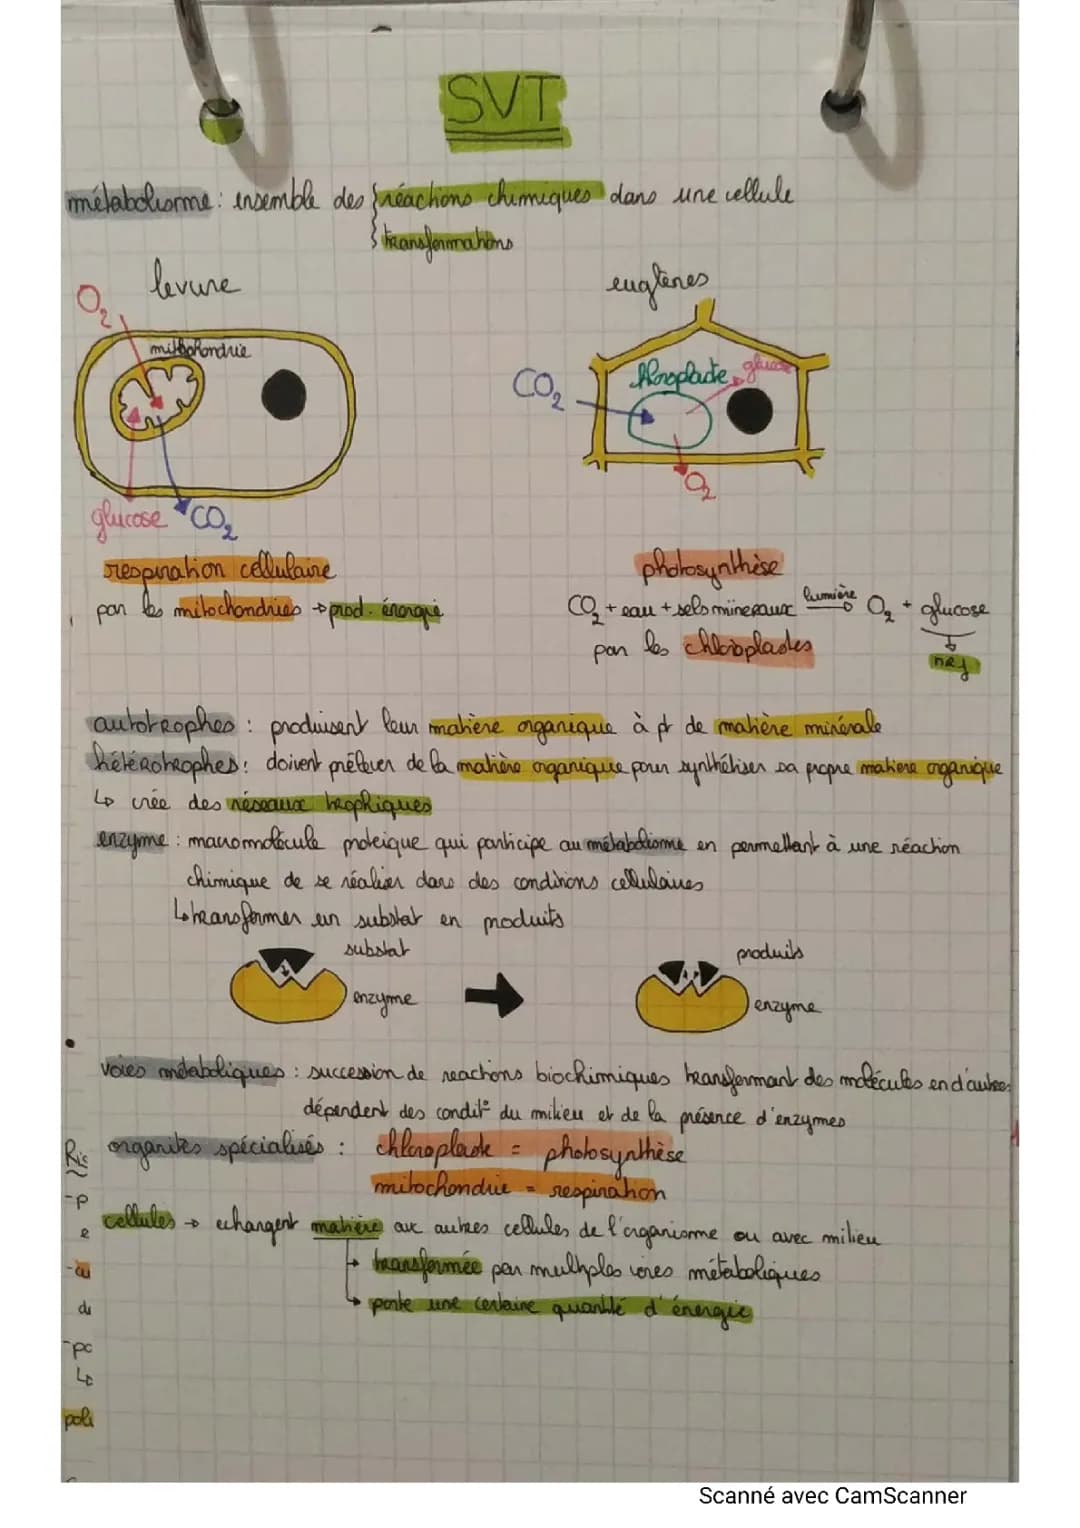 SVT
métabolisme : ensemble des { réactions chimiques dans une cellule
transformations
levure
euglènes
O2
mitochondrie
glucose
CO2
chloroplaste
glucose
CO2
O2
respiration cellulaire
par les mitochondries → prod. énergie
photosynthèse
CO2 + eau + sels minéraux lumière → O2 + glucose
par les chloroplastes
nrj
autotrophes : produisent leur matière organique à pt de matière minérale
hétérotrophes : doivent prélever de la matière organique pour synthétiser sa propre matière organique
↳ crée des réseaux trophiques
enzyme : macromolécule protéique qui participe au métabolisme en permettant à une réaction
chimique de se réaliser dans des conditions cellulaires
↳ transformer un substrat en produits
substrat
enzyme
produits
enzyme
voies métaboliques : succession de réactions biochimiques transformant des molécules en d'autres
dépendent des condit° du milieu et de la présence d'enzymes
organites spécialisés : chloroplaste = photosynthèse
mitochondrie = respiration
cellules → échangent matière avc autres cellules de l'organisme ou avec milieu
→ transformée par multiples voies métaboliques
→ porte une certaine quantité d'énergie
-p
e
de
↳
Scanné avec CamScanner